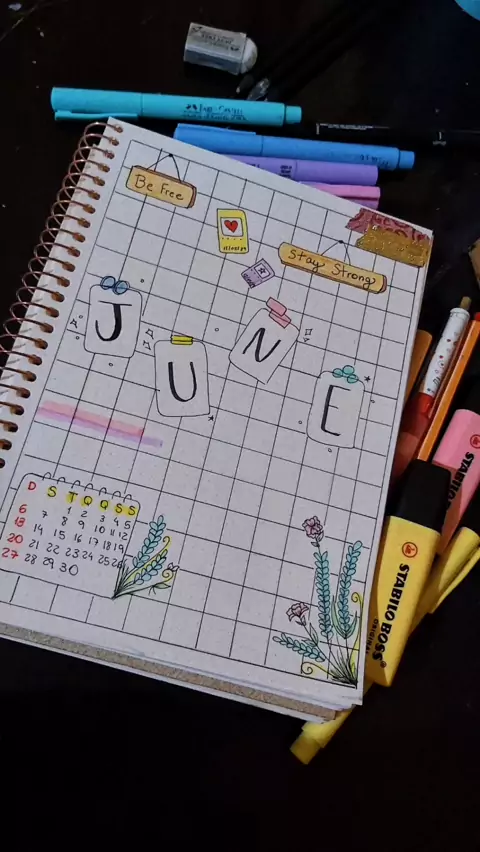 Be Free
Stay Strong
J U N E
D S T Q Q S S
1 2 3 4 5
6 7 8 9 10 11 12
13 14 15 16 17 18 19
20 21 22 23 24 25 26
27 28 29 30
STABILO BOSS
ORIGINAL
STABILO